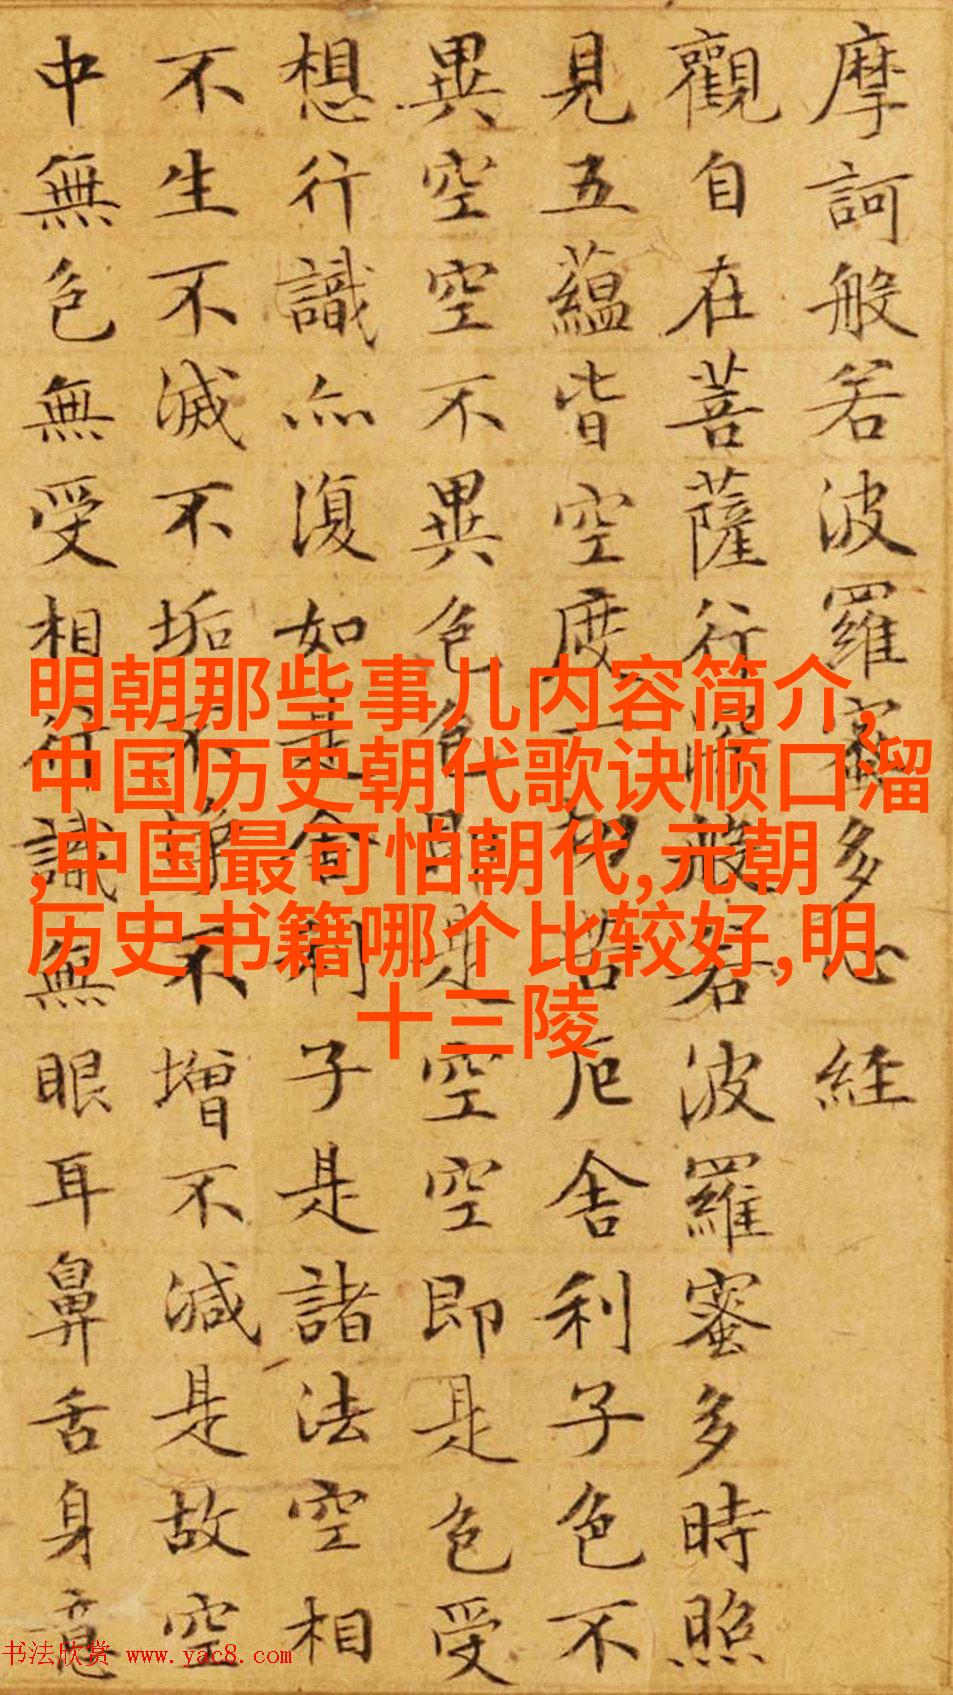 摩訶般若波羅蜜多心經
觀自在菩薩行深般若波羅蜜多時照
見五蘊皆空度一切苦厄舍利子色不
異空空不異色色即是空空即是色受
想行識亦復如是舍利子是諸法空相
不生不滅不垢不淨不增不減是故空
中無色無受相行識無眼耳鼻舌身意
明朝那些事儿内容简介,
中国历史朝代歌诀顺口溜
,中国最可怕朝代,元朝
历史书籍哪个比较好,明
十三陵
书法欣赏 www.yac8.com